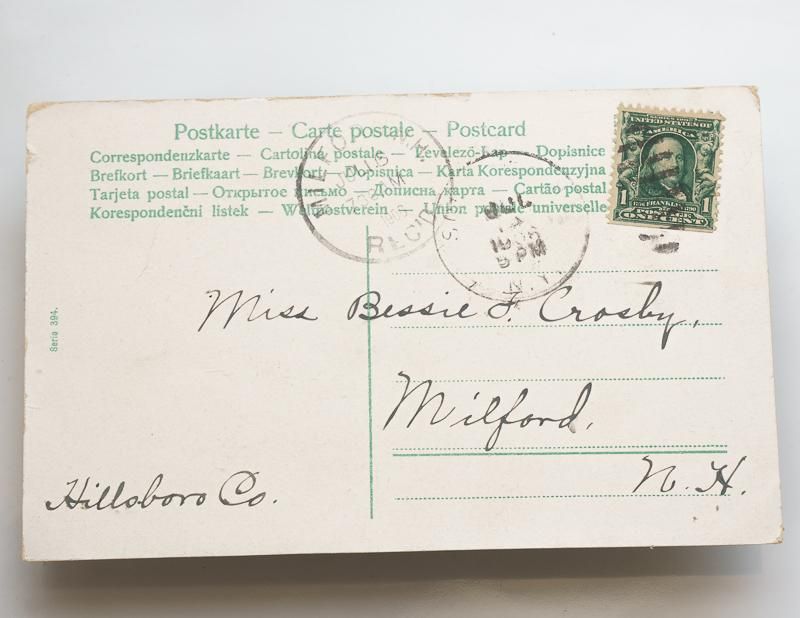 Postkarte — Carte postale — Postcard
Correspondenzkarte — Cartolina postale — Levelező-Lap — Dopisnice
Brefkort — Briefkaart — Brevkort — Dopisnica — Karta Korespondenzyjna
Tarjeta postal — Открытое письмо — Дописна карта — Cartão postal
Korespondenční listek — Weltpostverein — Union postale universelle
SERIES 1902
UNITED STATES OF
AMERICA
1 FRANKLIN 1
POSTAGE
ONE CENT
MILFORD N.H.
REC'D
JUL
5 PM
N.Y.
Miss Bessie F. Crosby,
Milford,
N. H.
Hillsboro Co.
Serie 394.